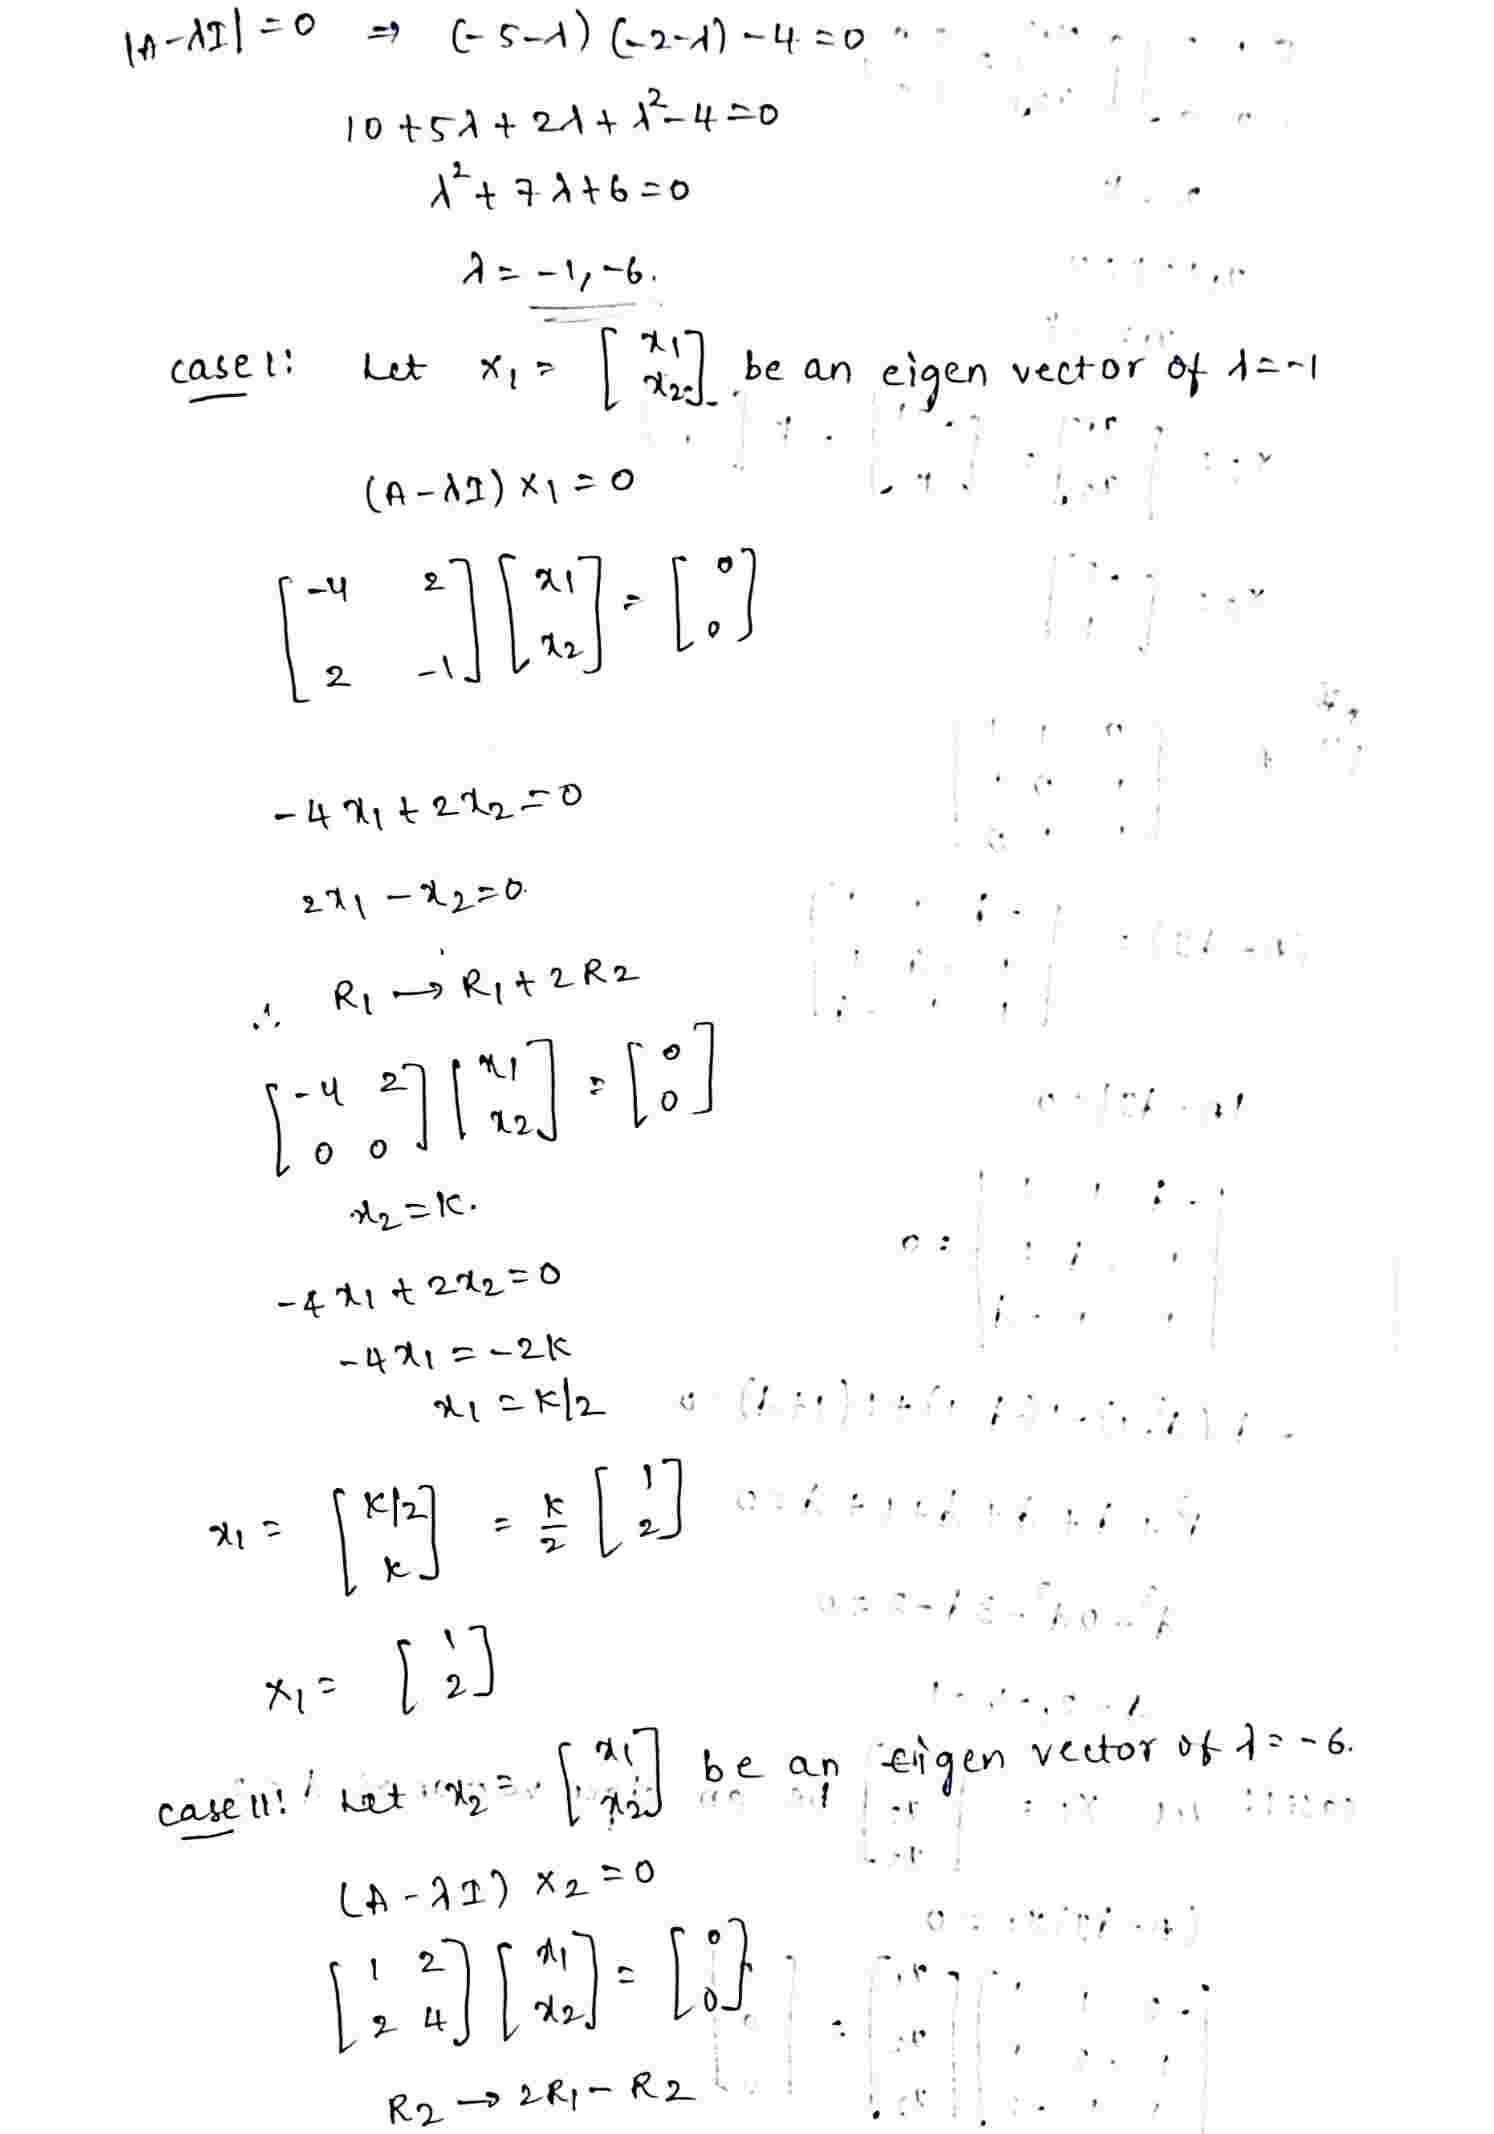 |A-λI| = 0 ⇒ (-5-λ) (-2-λ) - 4 = 0
10 + 5λ + 2λ + λ² - 4 = 0
λ² + 7λ + 6 = 0
λ = -1, -6.
case 1: Let x₁ = [x₁ x₂] be an eigen vector of λ = -1
(A-λI) x₁ = 0
[-4 2
2 -1] [x₁ x₂] = [0 0]
-4x₁ + 2x₂ = 0
2x₁ - x₂ = 0.
∴ R₁ → R₁ + 2R₂
[-4 2
0 0] [x₁ x₂] = [0 0]
x₂ = k.
-4x₁ + 2x₂ = 0
-4x₁ = -2k
x₁ = k/2
x₁ = [k/2 k] = k/2 [1 2]
x₁ = [1 2]
case 11: Let x₂ = [x₁ x₂] be an eigen vector of λ = -6.
(A-λI) x₂ = 0
[1 2
2 4] [x₁ x₂] = [0 0]
R₂ → 2R₁ - R₂